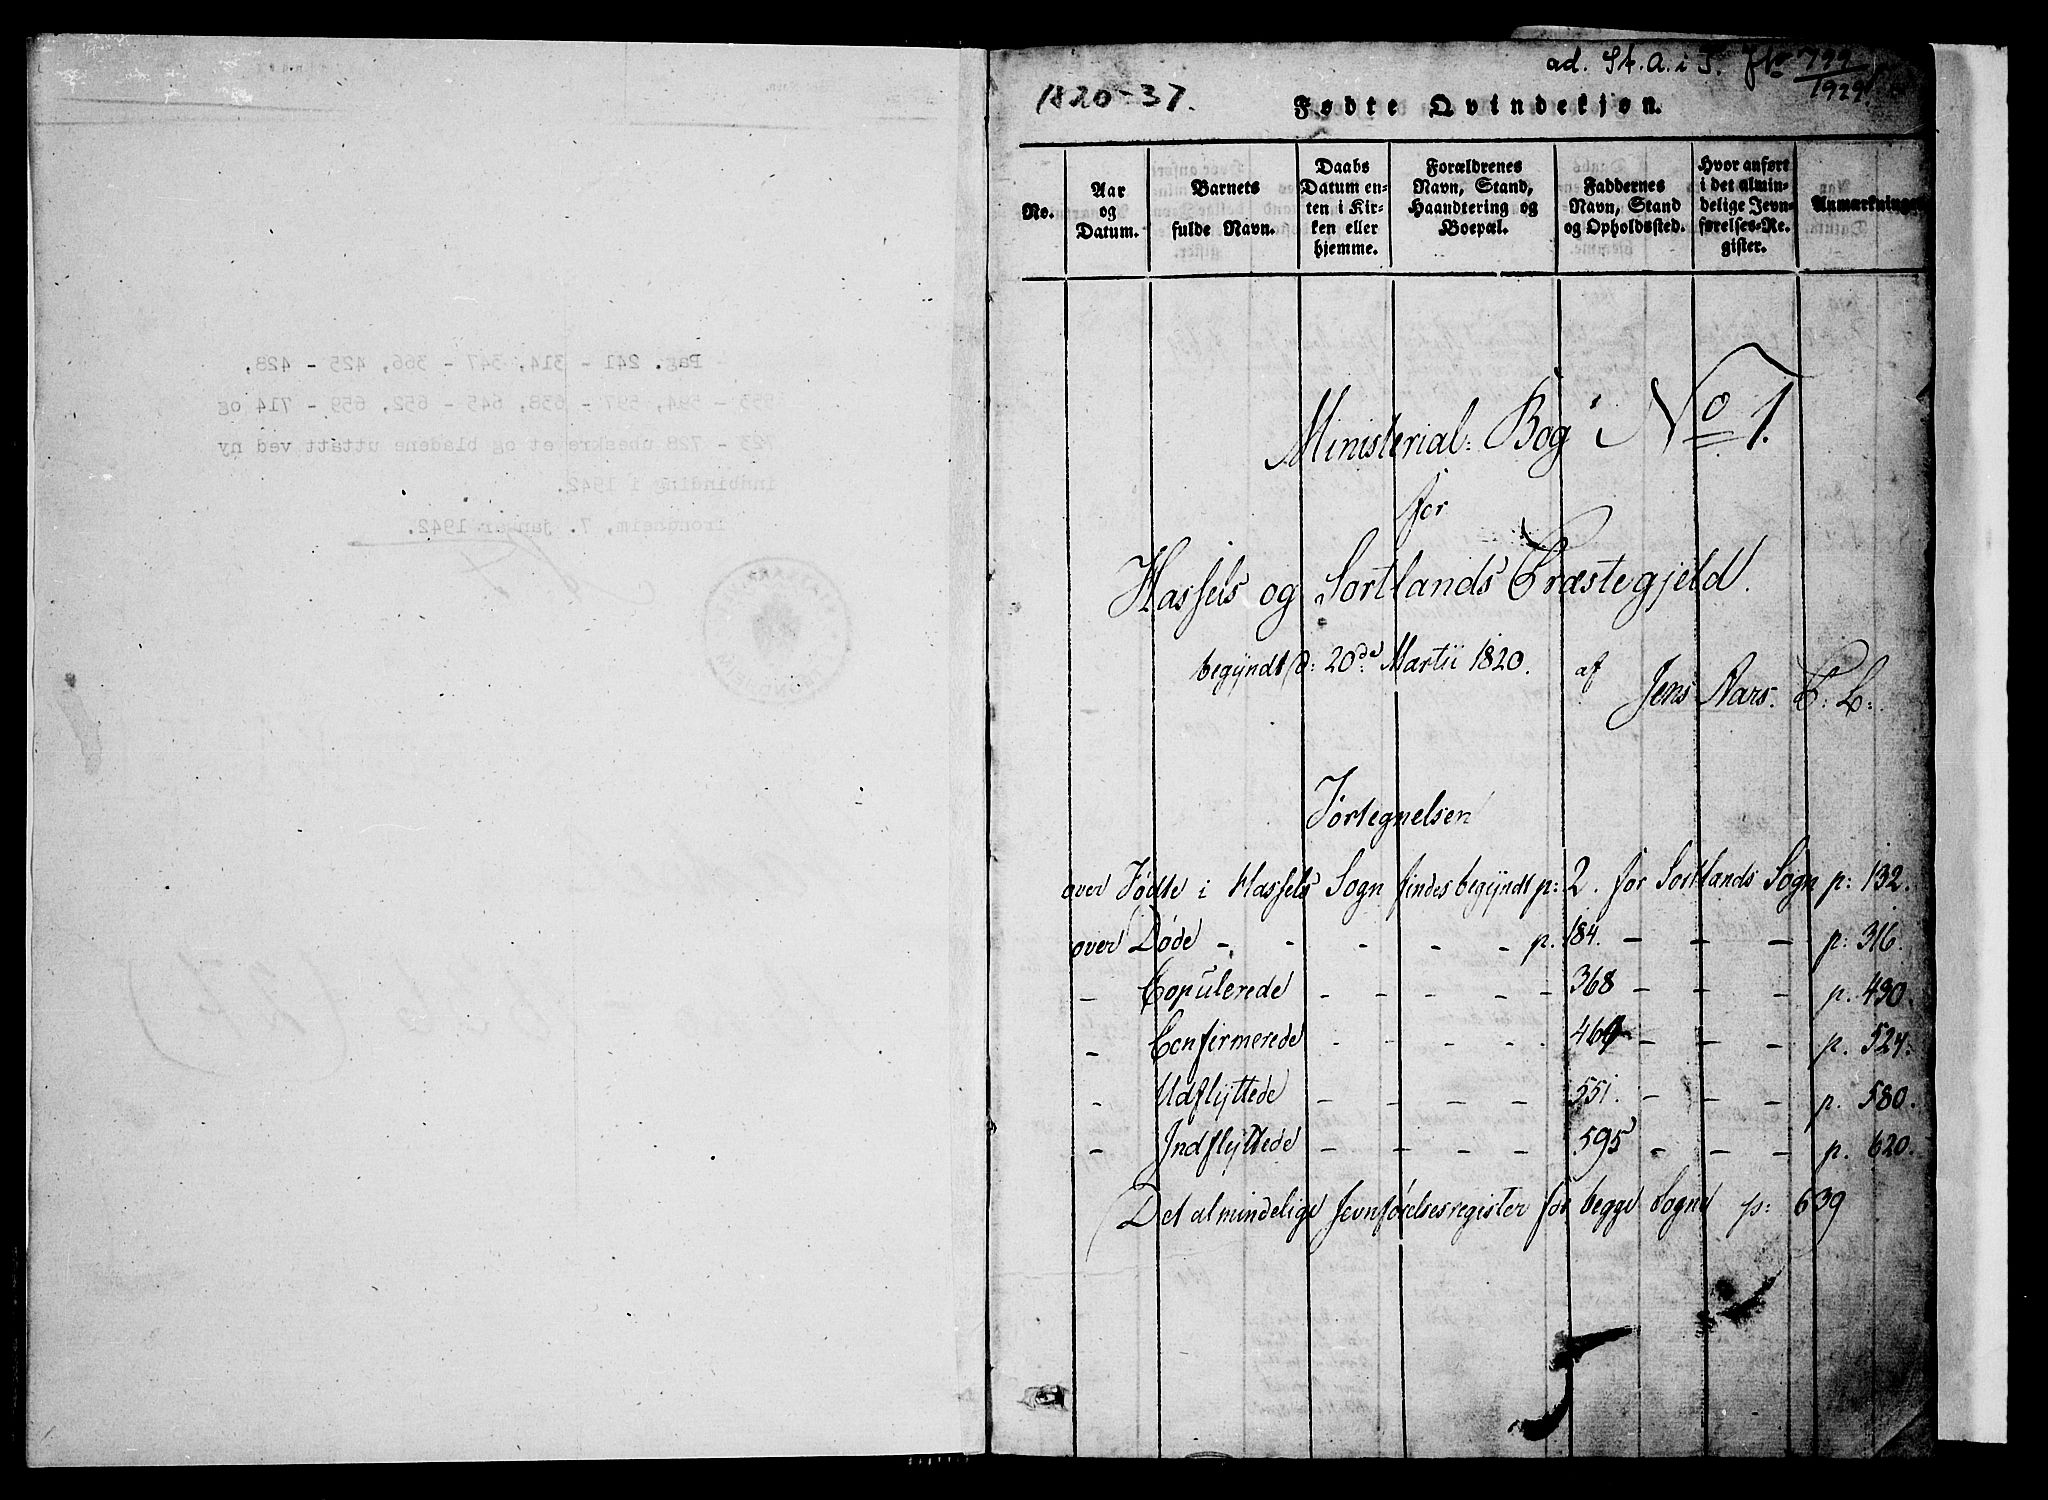 Pag. 241 - 314, 347 - 366, 425 - 428,
553 - 594, 597 - 638, 645 - 652, 659 - 714 og
723 - 728 ubeskrevet og bladene uttatt ved ny
indbinding i 1942.
Trondheim, 7. januar 1942.
ad. St. A. i T. 799/1929
1820-37.
Fødte Qvindekjøn.
No.
Aar
og
Datum.
Barnets
fulde Navn.
Daabs
Datum en-
ten i Kir-
ken eller
hjemme.
Forældrenes
Navn, Stand,
Haandtering og
Boepæl.
Faddernes
Navn, Stand
og Opholdssted.
Hvor anført
i det almin-
delige Jevn-
førelses-Re-
gister.
Anmærkninger
Ministerial: Bog No 1.
for
Hassels og Sortlands Præstegjeld.
begyndt d: 20de Martii 1820. af
Jens Aars.
Fortegnelsen
over Fødte i Hassels Sogn findes begyndt p: 2. for Sortlands Sogn p: 132.
over Døde - - - - - p. 184. - - - p: 316.
- Copulerede - - - - - 368 - - - p. 430.
- Confirmerede - - - - - 464 - - - p. 524.
- Udflyttede - - - - 551. - - - p. 580.
- Indflyttede - - - - 595 - - - p. 620.
Det almindelige Jevnførelsesregister for begge Sogne p: 639